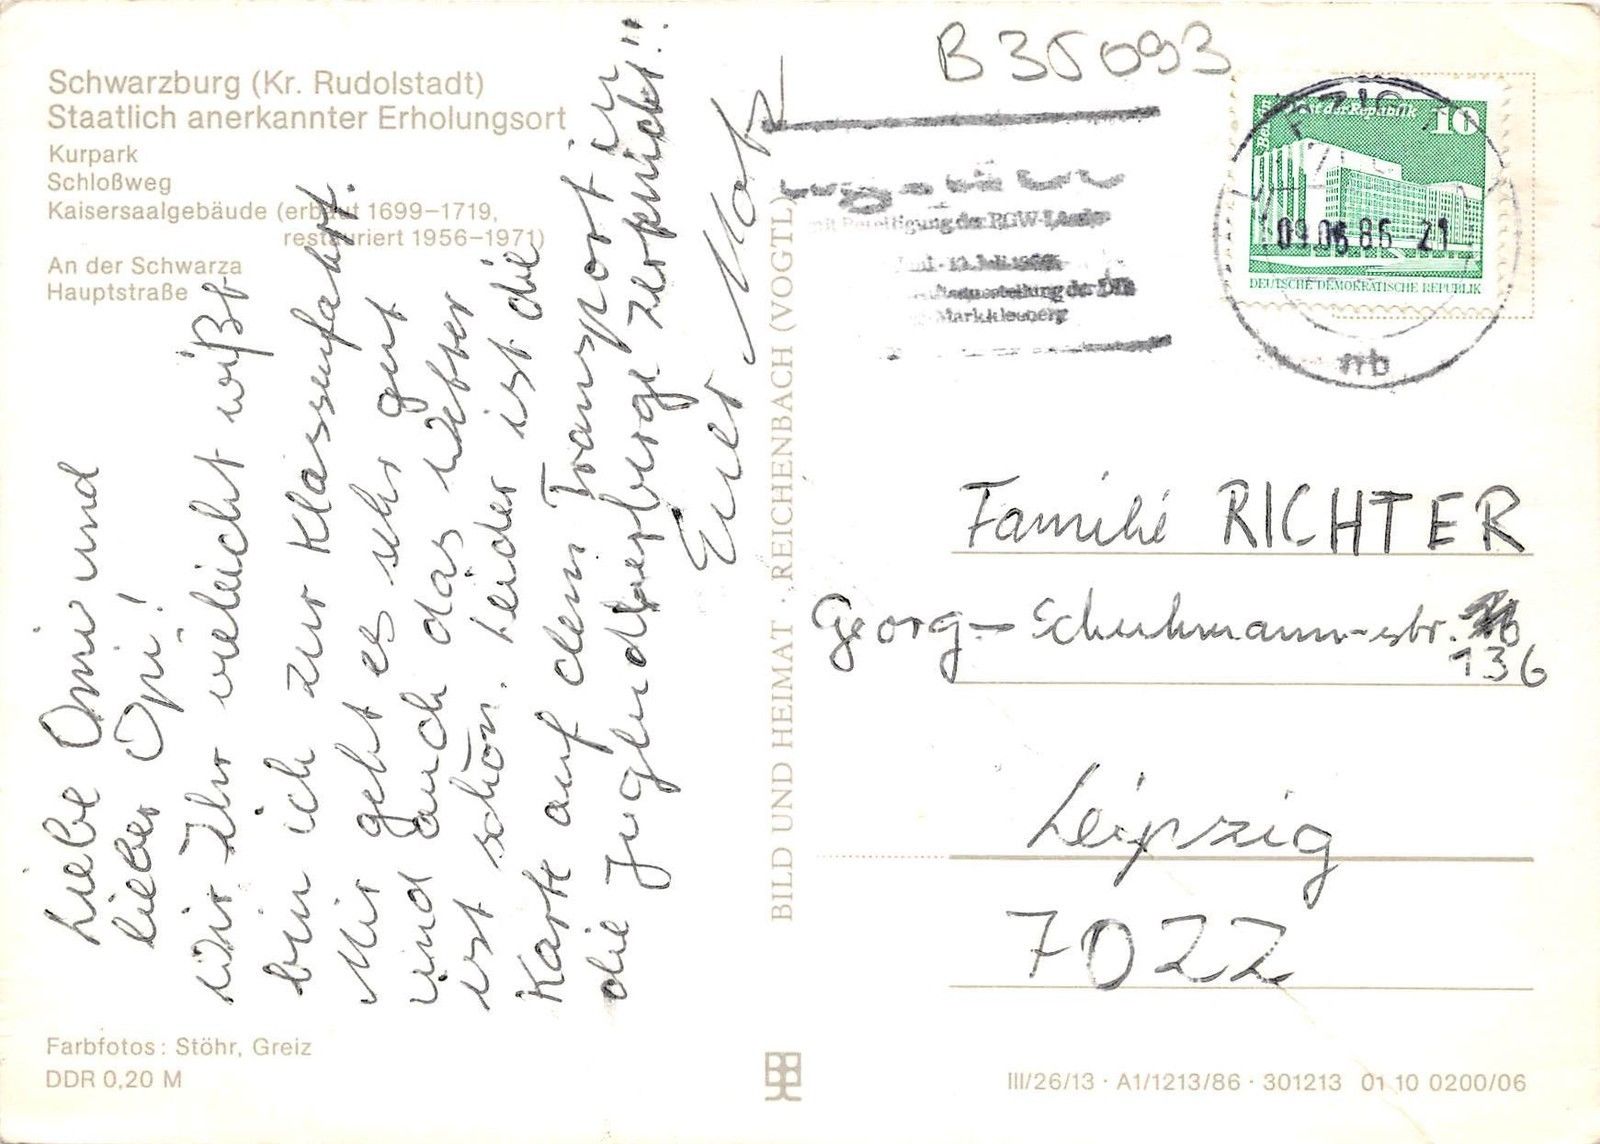 Schwarzburg (Kr. Rudolstadt)
Staatlich anerkannter Erholungsort
Kurpark
Schloßweg
Kaisersaalgebäude (erbaut 1699–1719,
restauriert 1956–1971)
An der Schwarza
Hauptstraße
Liebe Omi und
lieber Opi!
Wir Ihr vieleicht wißt
bin ich zur Klassenfahrt.
Mir geht es sehr gut
und auch das Wetter
ist schön. Leider ist die
Karte auf dem Transport in
die zerknickt!!
Euer
Farbfotos: Stöhr, Greiz
DDR 0,20 M
BILD UND HEIMAT · REICHENBACH (VOGTL)
B 35093
mit Beteiligung der RGW-Länder
Markkleeberg
10
DEUTSCHE DEMOKRATISCHE REPUBLIK
09.06.86-21
mb
Familie RICHTER
Georg-Schuhmann-str.
136
Leipzig
7022
III/26/13 · A1/1213/86 · 301213 01 10 0200/06